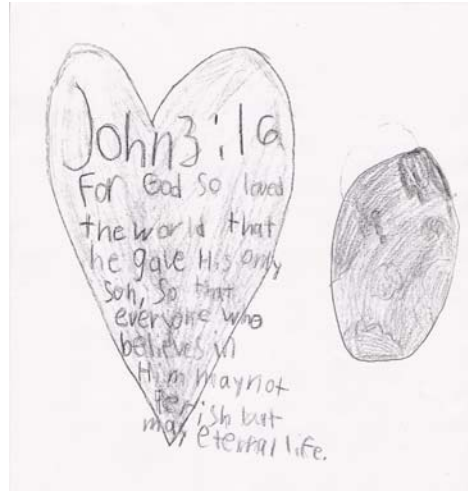 John 3:16
For God so loved
the world that
he gave His only
Son, So that
everyone who
believes in
Him may not
Perish but
may eternal life.